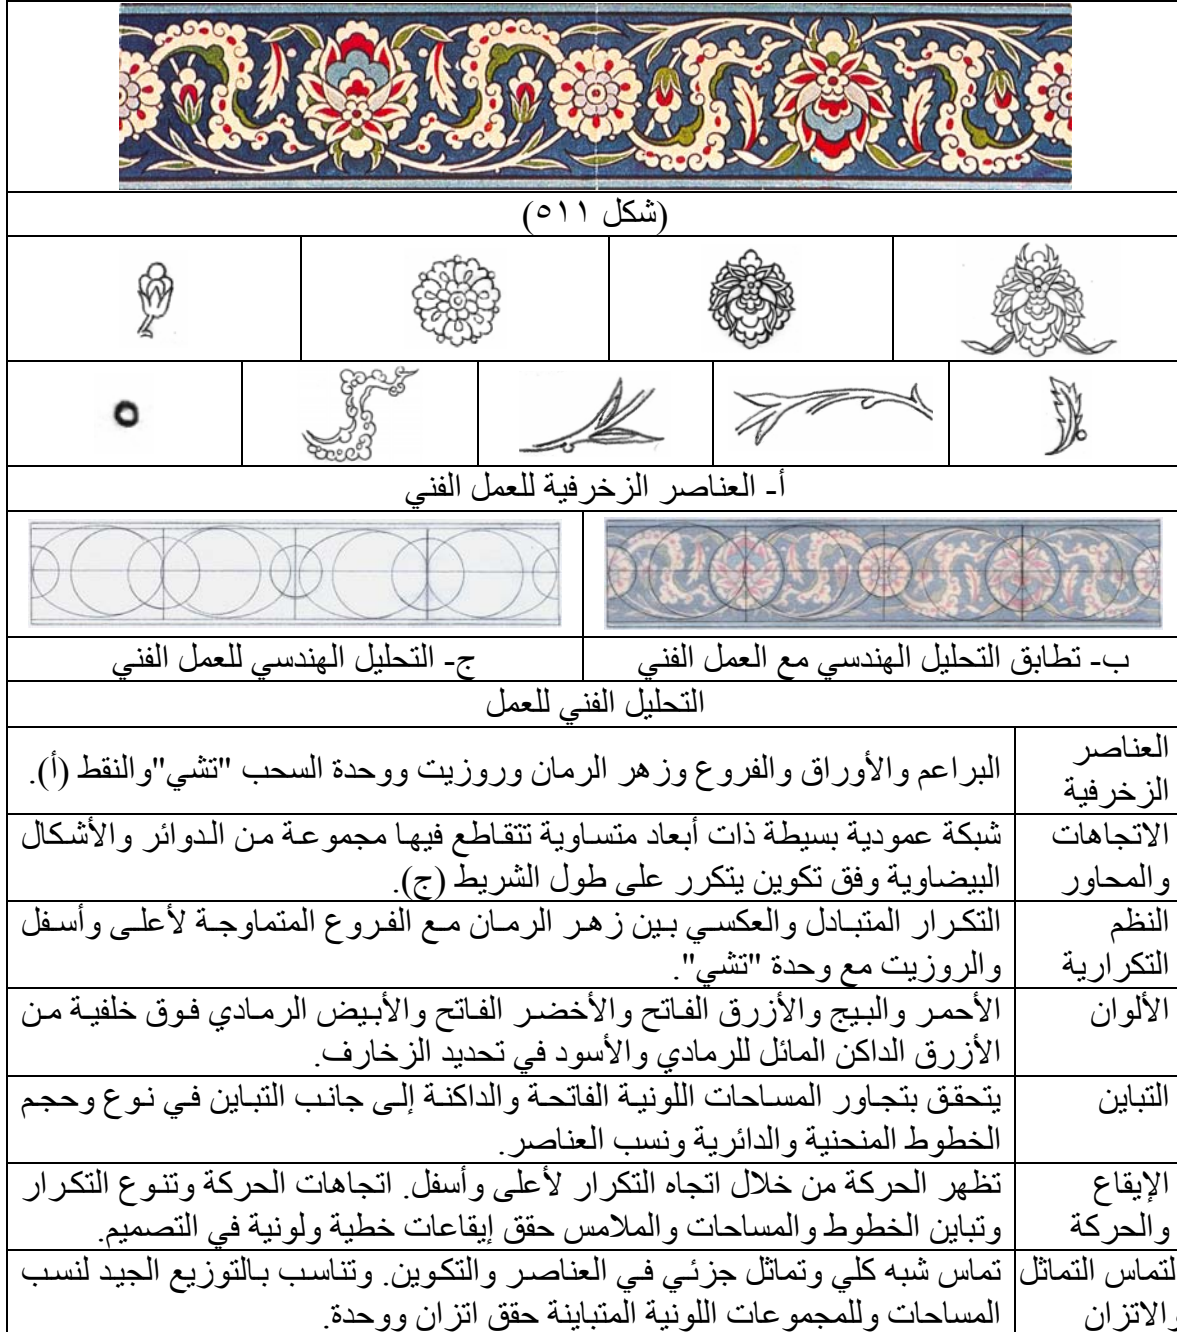 (شكل ٥١١)
أ- العناصر الزخرفية للعمل الفني
ب- تطابق التحليل الهندسي مع العمل الفني
ج- التحليل الهندسي للعمل الفني
التحليل الفني للعمل
العناصر
الزخرفية
البراعم والأوراق والفروع وزهر الرمان وروزيت ووحدة السحب "تشي"والنقط (أ).
الاتجاهات
والمحاور
شبكة عمودية بسيطة ذات أبعاد متساوية تتقاطع فيها مجموعة من الدوائر والأشكال
البيضاوية وفق تكوين يتكرر على طول الشريط (ج).
النظم
التكرارية
التكرار المتبادل والعكسي بين زهر الرمان مع الفروع المتماوجة لأعلى وأسفل
والروزيت مع وحدة "تشي".
الألوان
الأحمر والبيج والأزرق الفاتح والأخضر الفاتح والأبيض الرمادي فوق خلفية من
الأزرق الداكن المائل للرمادي والأسود في تحديد الزخارف.
التباين
يتحقق بتجاور المساحات اللونية الفاتحة والداكنة إلى جانب التباين في نوع وحجم
الخطوط المنحنية والدائرية ونسب العناصر.
الإيقاع
والحركة
تظهر الحركة من خلال اتجاه التكرار لأعلى وأسفل. اتجاهات الحركة وتنوع التكرار
وتباين الخطوط والمساحات والملامس حقق إيقاعات خطية ولونية في التصميم.
لتماس التماثل
والاتزان
تماس شبه كلي وتماثل جزئي في العناصر والتكوين. وتناسب بالتوزيع الجيد لنسب
المساحات وللمجموعات اللونية المتباينة حقق اتزان ووحدة.